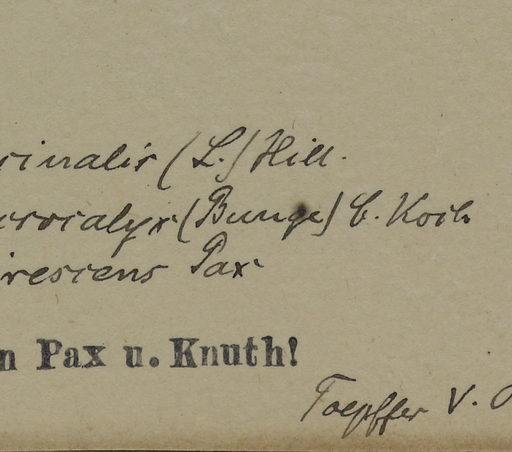 cinalis (L.) Hill.
crocalyx (Bunge) C. Koch
irescens Pax
n Pax u. Knuth!
Toepffer V.